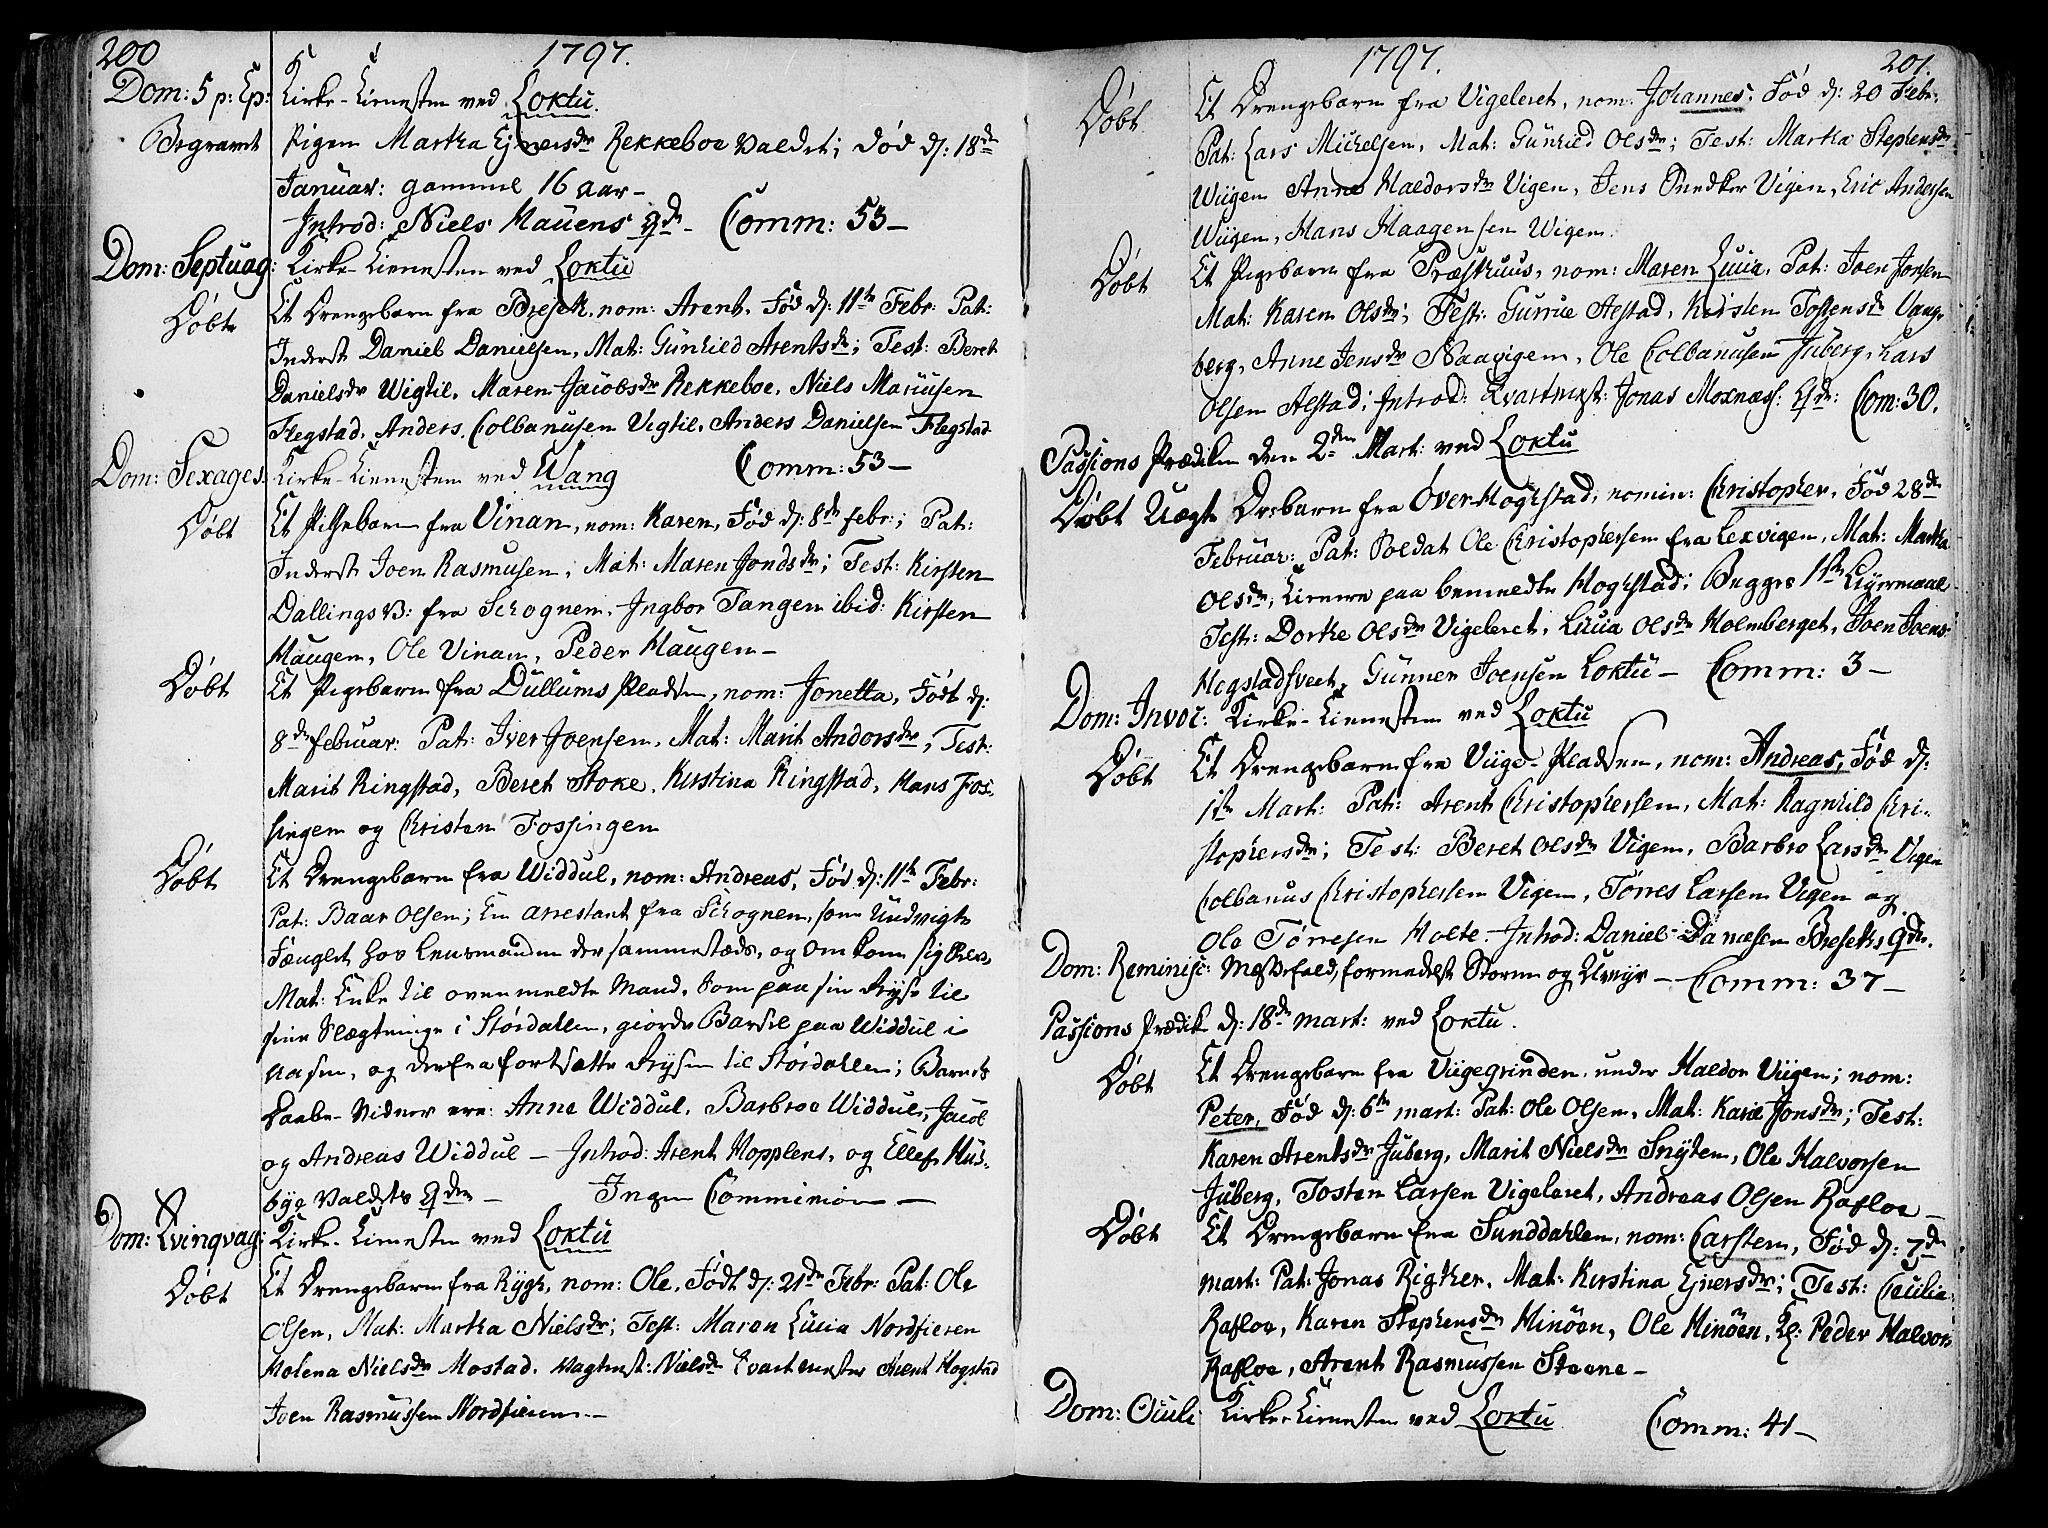 200 1797.
Dom: 5 p: Ep: Kirke-Tienesten ved Loktu.
Begravet Pigen Martha Ejnersdr Rekkeboe Valdet; død d: 18de
Januar: gammel 16 aar –
Introd: Niels Hauens Qde – Comm: 53 –
Dom: Septuag: Kirke-Tienesten ved Loktu
Døbt Et Drengebarn fra Bresek, nom: Arent, Fød d: 11te Febr: Pat:
Inderst Daniel Danielsen, Mat: Gunhild Arentsdr; Test: Beret
Danielsdr Wigtil, Maren Jacobsdr Rekkeboe, Niels Mariusen
Flegstad, Anders Colbanusen Vigtil, Anders Danielsen Flegstad
Dom: Sexages: Kirke-Tienesten ved Wang Comm: 53 –
Døbt Et Pigebarn fra Vinan, nom: Karen, Fød d: 8de febr:; Pat:
Inderst Joen Rasmusen; Mat: Maren Jondsdr; Test: Kirsten
Dallings fra Schognen, Ingbor Tangen ibid: Kirsten
Haugen, Ole Vinan, Peder Haugen –
Døbt Et Pigebarn fra Dullums Pladsen, nom: Jonetta, Født d:
8de februar: Pat: Iver Joensen, Mat: Marit Andorsdr; Test:
Marit Ringstad, Beret Stoke, Kirstina Ringstad, Hans Fos-
singen og Christen Fossingen
Døbt Et Drengebarn fra Widdul, nom: Andreas, Fød d: 11te Febr:
Pat: Baar Olsen; En arrestant fra Schognen, som Undvigte
Fænglet hos Lensmanden dersammestæds, og omkom sig
Mat: Enke til ovenmeldte Mand, som paa sin Rejse til
sine Slægtninge i Stördallen, giorde Barsel paa Widdul i
Aasen, og derfra fortsatte Rejsen til Stördallen; Barnets
Daabs-Vidner ere: Anne Widdul, Barbroe Widdul, Jacob
og Andreas Widdul – Introd: Arent Hopplens, og Ellef Hus-
bye Valdets Qder – Ingen Comminion –
Dom: Qvinqvag: Kirke-Tienesten ved Loktu
Døbt Et Drengebarn fra Rygh, nom: Ole, Født d: 21de Febr: Pat: Ole
Olsen, Mat: Martha Nielsdr; Test: Maren Lucia Nordfieren
Molena Nielsdr Mostad, Nielsdr Arent Hogstad
Joen Rasmussen Nordfieren –
1797. 201.
Døbt Et Drengebarn fra Vigeleret, nom: Johannes, Fød d: 20 Febr:
Pat: Lars Michelsen, Mat: Gunhild Olsdr; Test: Martha Stephensdr
Wiigen Anne Haldorsdr Vigen, Jens Snedker Vigen, Eric Andersen
Wiigen, Hans Haagensen Wigen.
Døbt Et Pigebarn fra Præsthuus, nom: Maren Lucia, Pat: Joen Jonsen
Mat: Karen Olsdr; Test: Gurrue Alstad, Kirsten Tostensdr Vang-
berg, Anne Jensdr Naavigen, Ole Colbanusen Juberg, Lars
Olsen Alstad; Introd: Jonas Moxnæss: Qde: Com: 30.
Passions Prædiken den 2den Mart: ved Loktu
Døbt Uægte Drbarn fra Over-Hogstad, nomin: Christopher, Fød 28de
Februar: Pat: Soldat Ole Christophersen fra Lexvigen, Mat: Martha
Olsdr, Tienere paa bemeldte Hogstad; Begges 1ste Leyermaal
Test: Dorthe Olsdr Vigeleret, Lucia Olsdr Holmberget, Joen Joens:
Hogstadsveet, Gunner Joensen Loktu – Comm: 3 –
Dom: Invoc: Kirke-Tienesten ved Loktu
Døbt Et Drengebarn fra Viige-Pladsen, nom: Andreas, Fød d:
1ste Mart: Pat: Arent Christophersen, Mat: Ragnhild Chri-
stophersdr; Test: Beret Olsdr Vigen, Barbro Larsdr Vigen
Colbanus Christophersen Vigen, Törres Larsen Vigen og
Ole Törresen Holte. Introd: Daniel Danielsen Breseks Qde.
Dom: Reminisc: Messefald, formedelst Storm og Uveyr – Comm: 37 –
Passions Prædik d: 18de mart: ved Loktu.
Døbt Et Drengebarn fra Viigegrinden, under Haldor Viigen; nom:
Peter, Fød d: 6te mart: Pat: Ole Olsen, Mat: Karie Jonsdr; Test:
Karen Arentsdr Juberg, Marit Nielsdr Snyten, Ole Halvorsen
Juberg, Tosten Larsen Vigeleret, Andreas Olsen Rafloe –
Døbt Et Drengebarn fra Sunddahlen, nom: Carsten, Fød d: 7de
mart: Pat: Jonas Rigther, Mat: Kirstina Ejnersdr; Test: Cecilia
Rafloe, Karen Stephensdr Hinöen, Ole Hinöen, Peder Halvors
Rafloe, Arent Rasmussen Steene –
Dom: Oculi Kirke-Tienesten ved Loktu Comm: 41 –